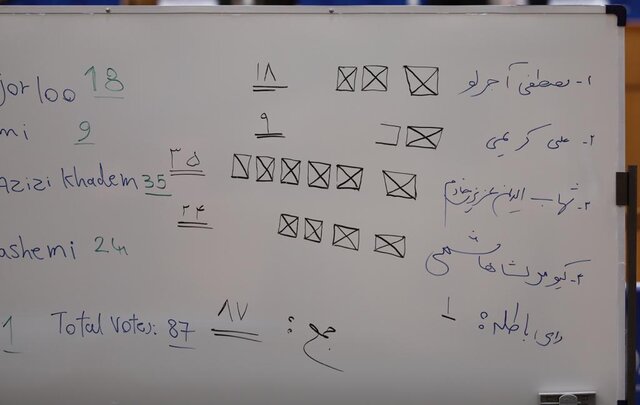 jorloo 18 ۱۸ ۱- مصطفی آجرلو
mi 9 ۹ ۲- علی کریمی
Azizi Khadem 35 ۳۵ ۳- شهاب الدین عزیزی خادم
ashemi 24 ۲۴ ۴- کیومرث هاشمی
1 Total Votes: 87 ۸۷ جمع: ۱ رای باطله: